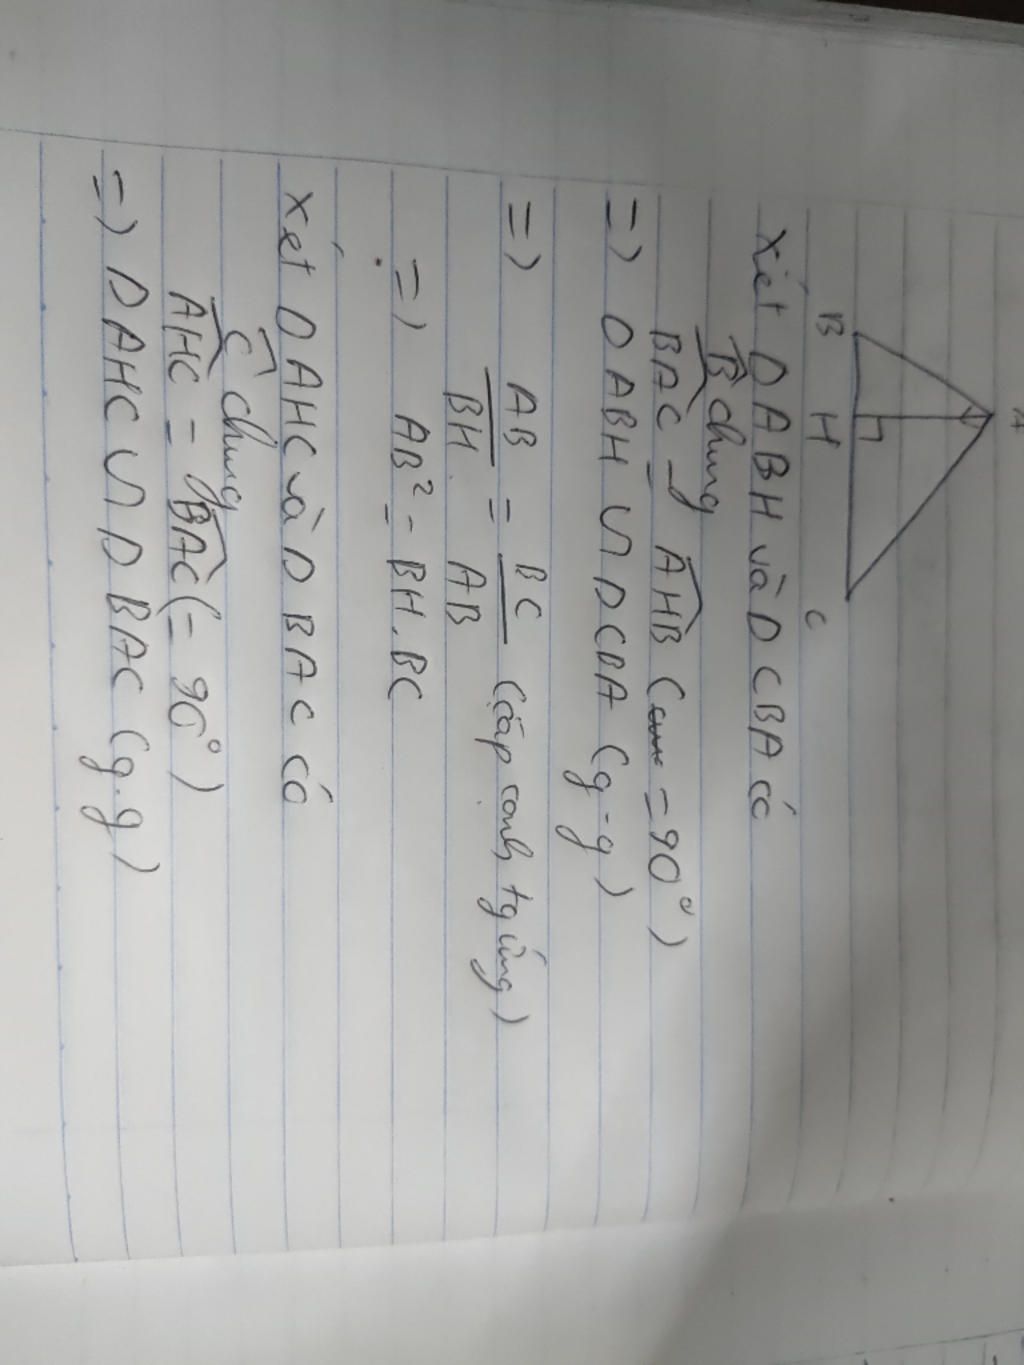 A
B H C
Xét ΔABH và ΔCBA có
B̂ chung
BAC = AHB (= 90°)
=) ΔABH ∽ ΔCBA (g-g)
=) AB/BH = BC/AB (cặp cạnh tg ứng)
=) AB² = BH.BC
Xét ΔAHC và ΔBAC có
Ĉ chung
AHC = BAC (= 90°)
=) ΔAHC ∽ ΔBAC (g.g)